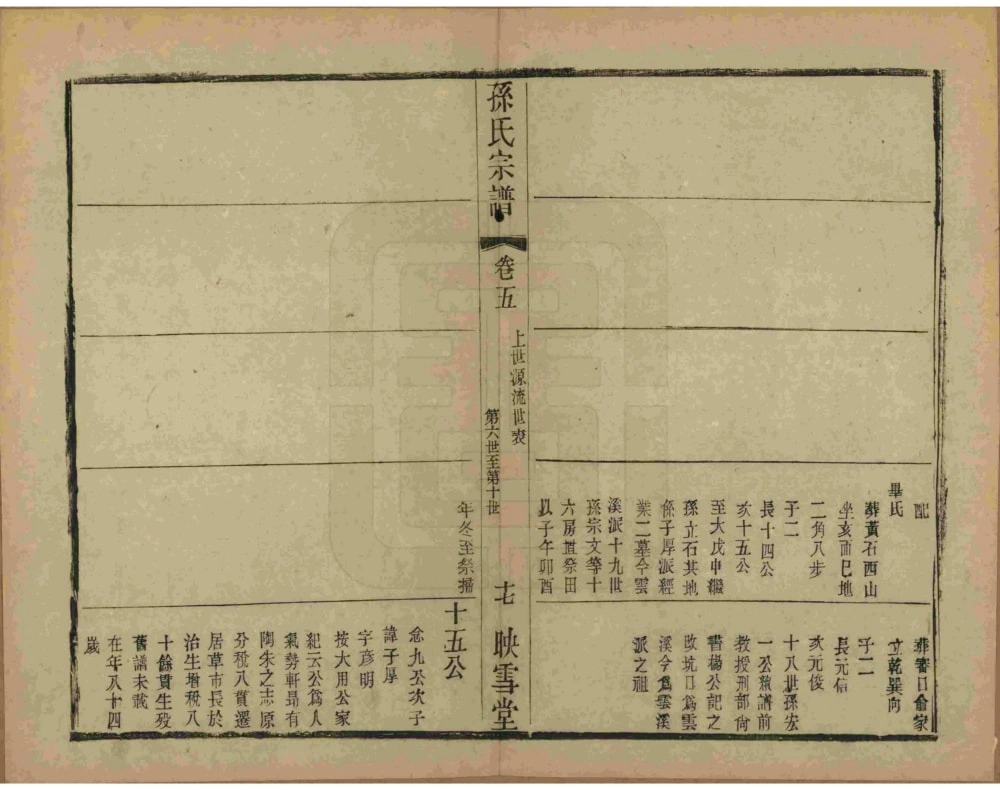 配
畢氏
葬黃石西山
坐亥面巳地
二角八步
子二
長十四公
亥十五公
至大戊申繼
孫立石其地
係子厚派經
業二墓今雲
溪派十九世
孫宗文等十
六房置祭田
以子午卯酉
葬窨口俞家
立乾巽向
子二
長元信
次元俊
十八世孫宏
一公績譜前
教授刑部尙
書楊公記之
改坑口爲雲
溪今爲雲溪
派之祖
孫氏宗譜
卷五
上世源流世表
第六世至第十世
十七
映雪堂
年冬至祭掃
十五公
念九公次子
諱子厚
字彥明
按大用公家
紀云公爲人
氣勢軒昻有
陶朱之志原
分稅八貫遷
居草市長於
治生增稅八
十餘貫生殁
舊譜未載
在年八十四
歲